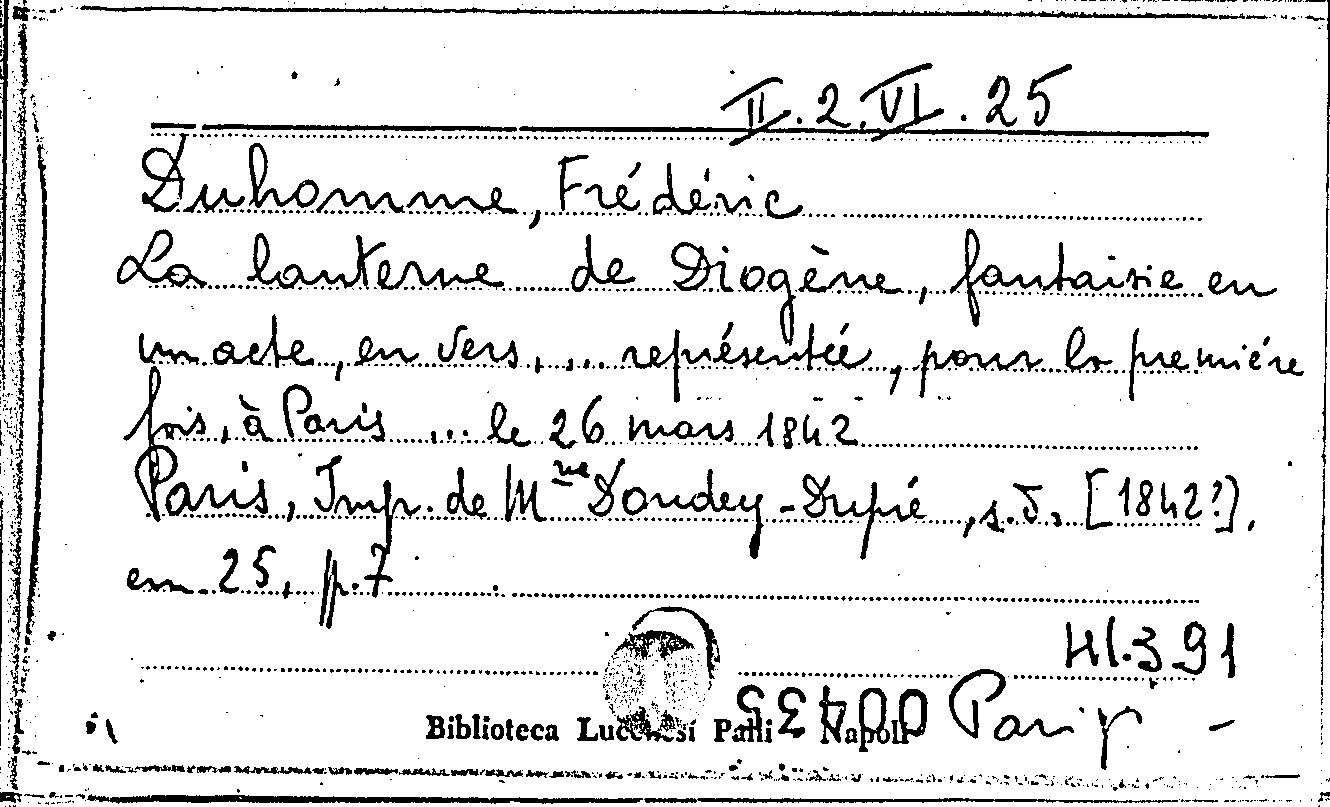 II.2.VI.25
Duhomme, Frédéric
La lanterne de Diogène, fantaisie en
un acte, en vers, ... représentée, pour la première
fois, à Paris ... le 26 mars 1842
Paris, Imp. de Mme Dondey-Dupré, s.d. [1842?],
cm. 25, p. 7
41.391
Biblioteca Lucchesi Palli Napoli